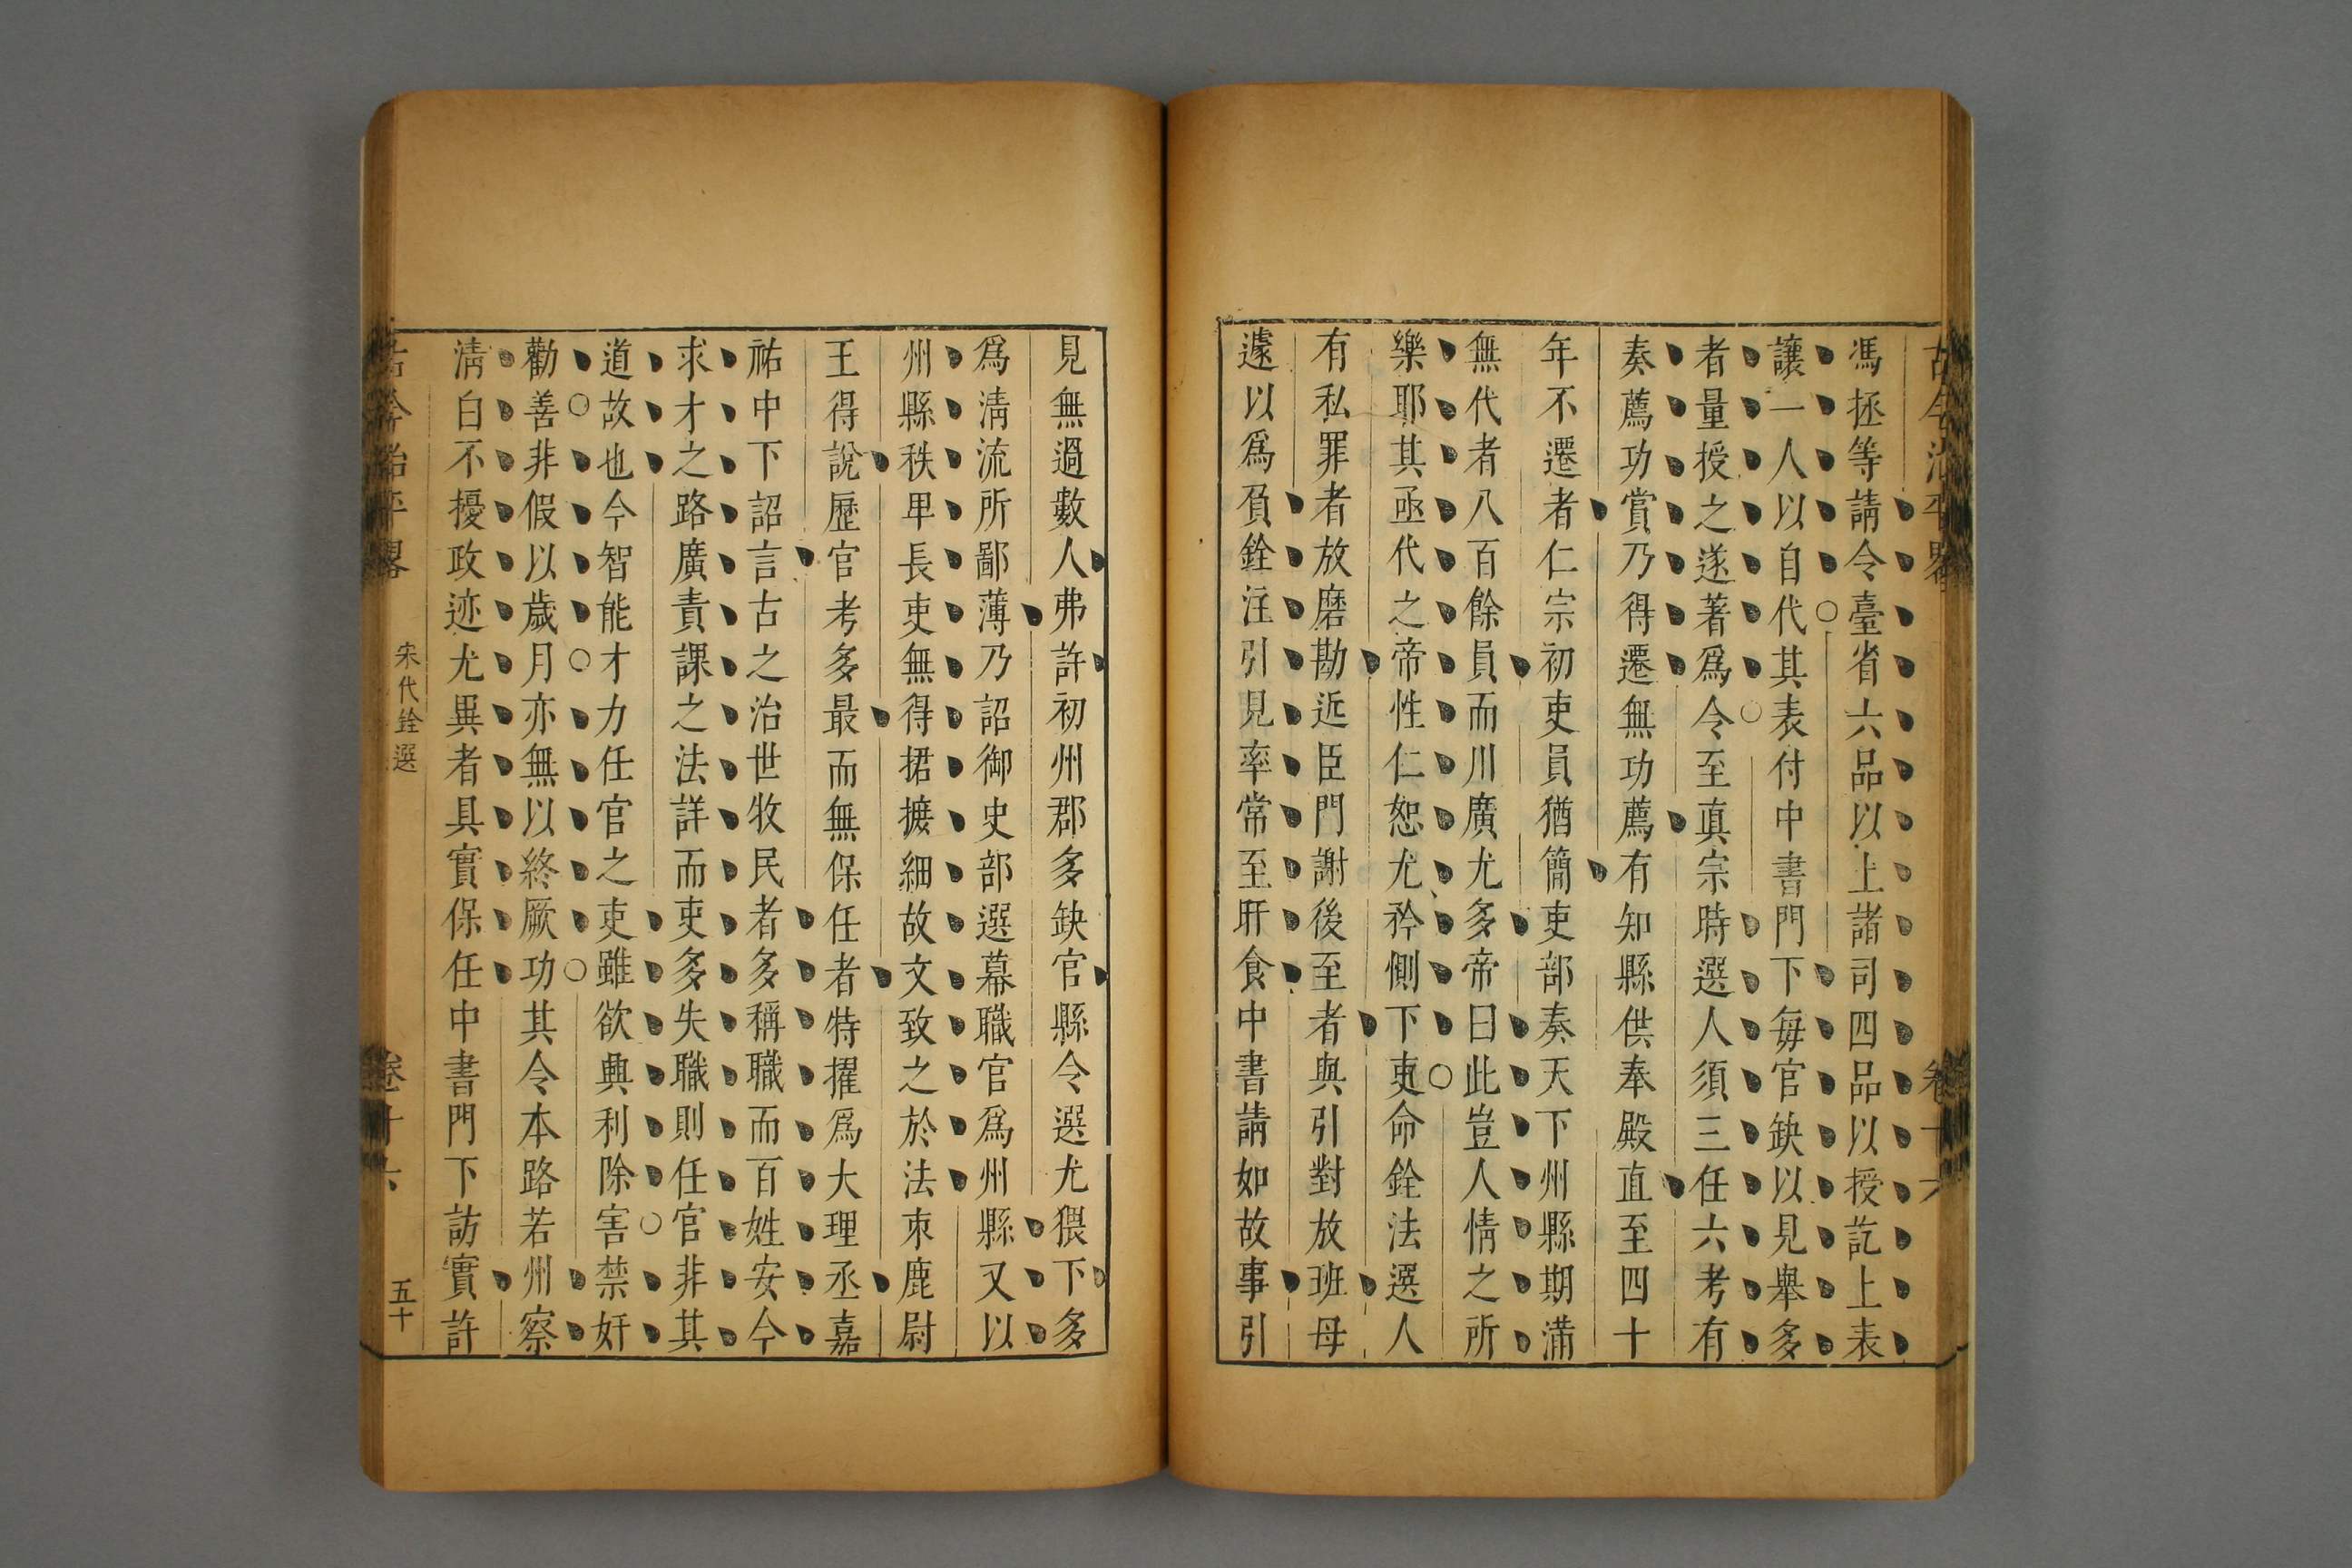 古今治平畧 卷十六
馮拯等請令臺省六品以上諸司四品以授訖上表
讓一人以自代其表付中書門下每官缺以見舉多
者量授之遂著爲令至真宗時選人須三任六考有
奏薦功賞乃得遷無功薦有知縣供奉殿直至四十
年不遷者仁宗初吏員猶簡吏部奏天下州縣期滿
無代者八百餘員而川廣尤多帝曰此豈人情之所
樂耶其亟代之帝性仁恕尤矜惻下吏命銓法選人
有私罪者放磨勘近臣門謝後至者與引對放班毋
遽以爲負銓注引見率常至旰食中書請如故事引
見無過數人弗許初州郡多缺官縣令選尤猥下多
爲清流所鄙薄乃詔御史部選幕職官爲州縣又以
州縣秩卑長吏無得捃摭細故文致之於法束鹿尉
王得說歷官考多最而無保任者特擢爲大理丞嘉
祐中下詔言古之治世牧民者多稱職而百姓安今
求才之路廣責課之法詳而吏多失職則任官非其
道故也今智能才力任官之吏雖欲興利除害禁奸
勸善非假以歲月亦無以終厥功其令本路若州察
清白不擾政迹尤異者具實保任中書門下訪實許
古今治平畧 宋代銓選 卷十六 五十